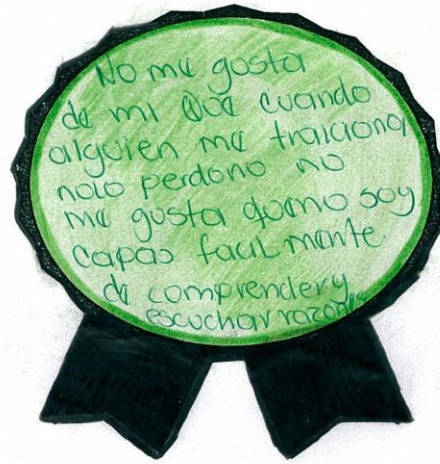 No me gusta
de mi que cuando
alguien me traiciona
nolo perdono no
me gusta que no soy
capas facilmente
de comprender y
escuchar razones